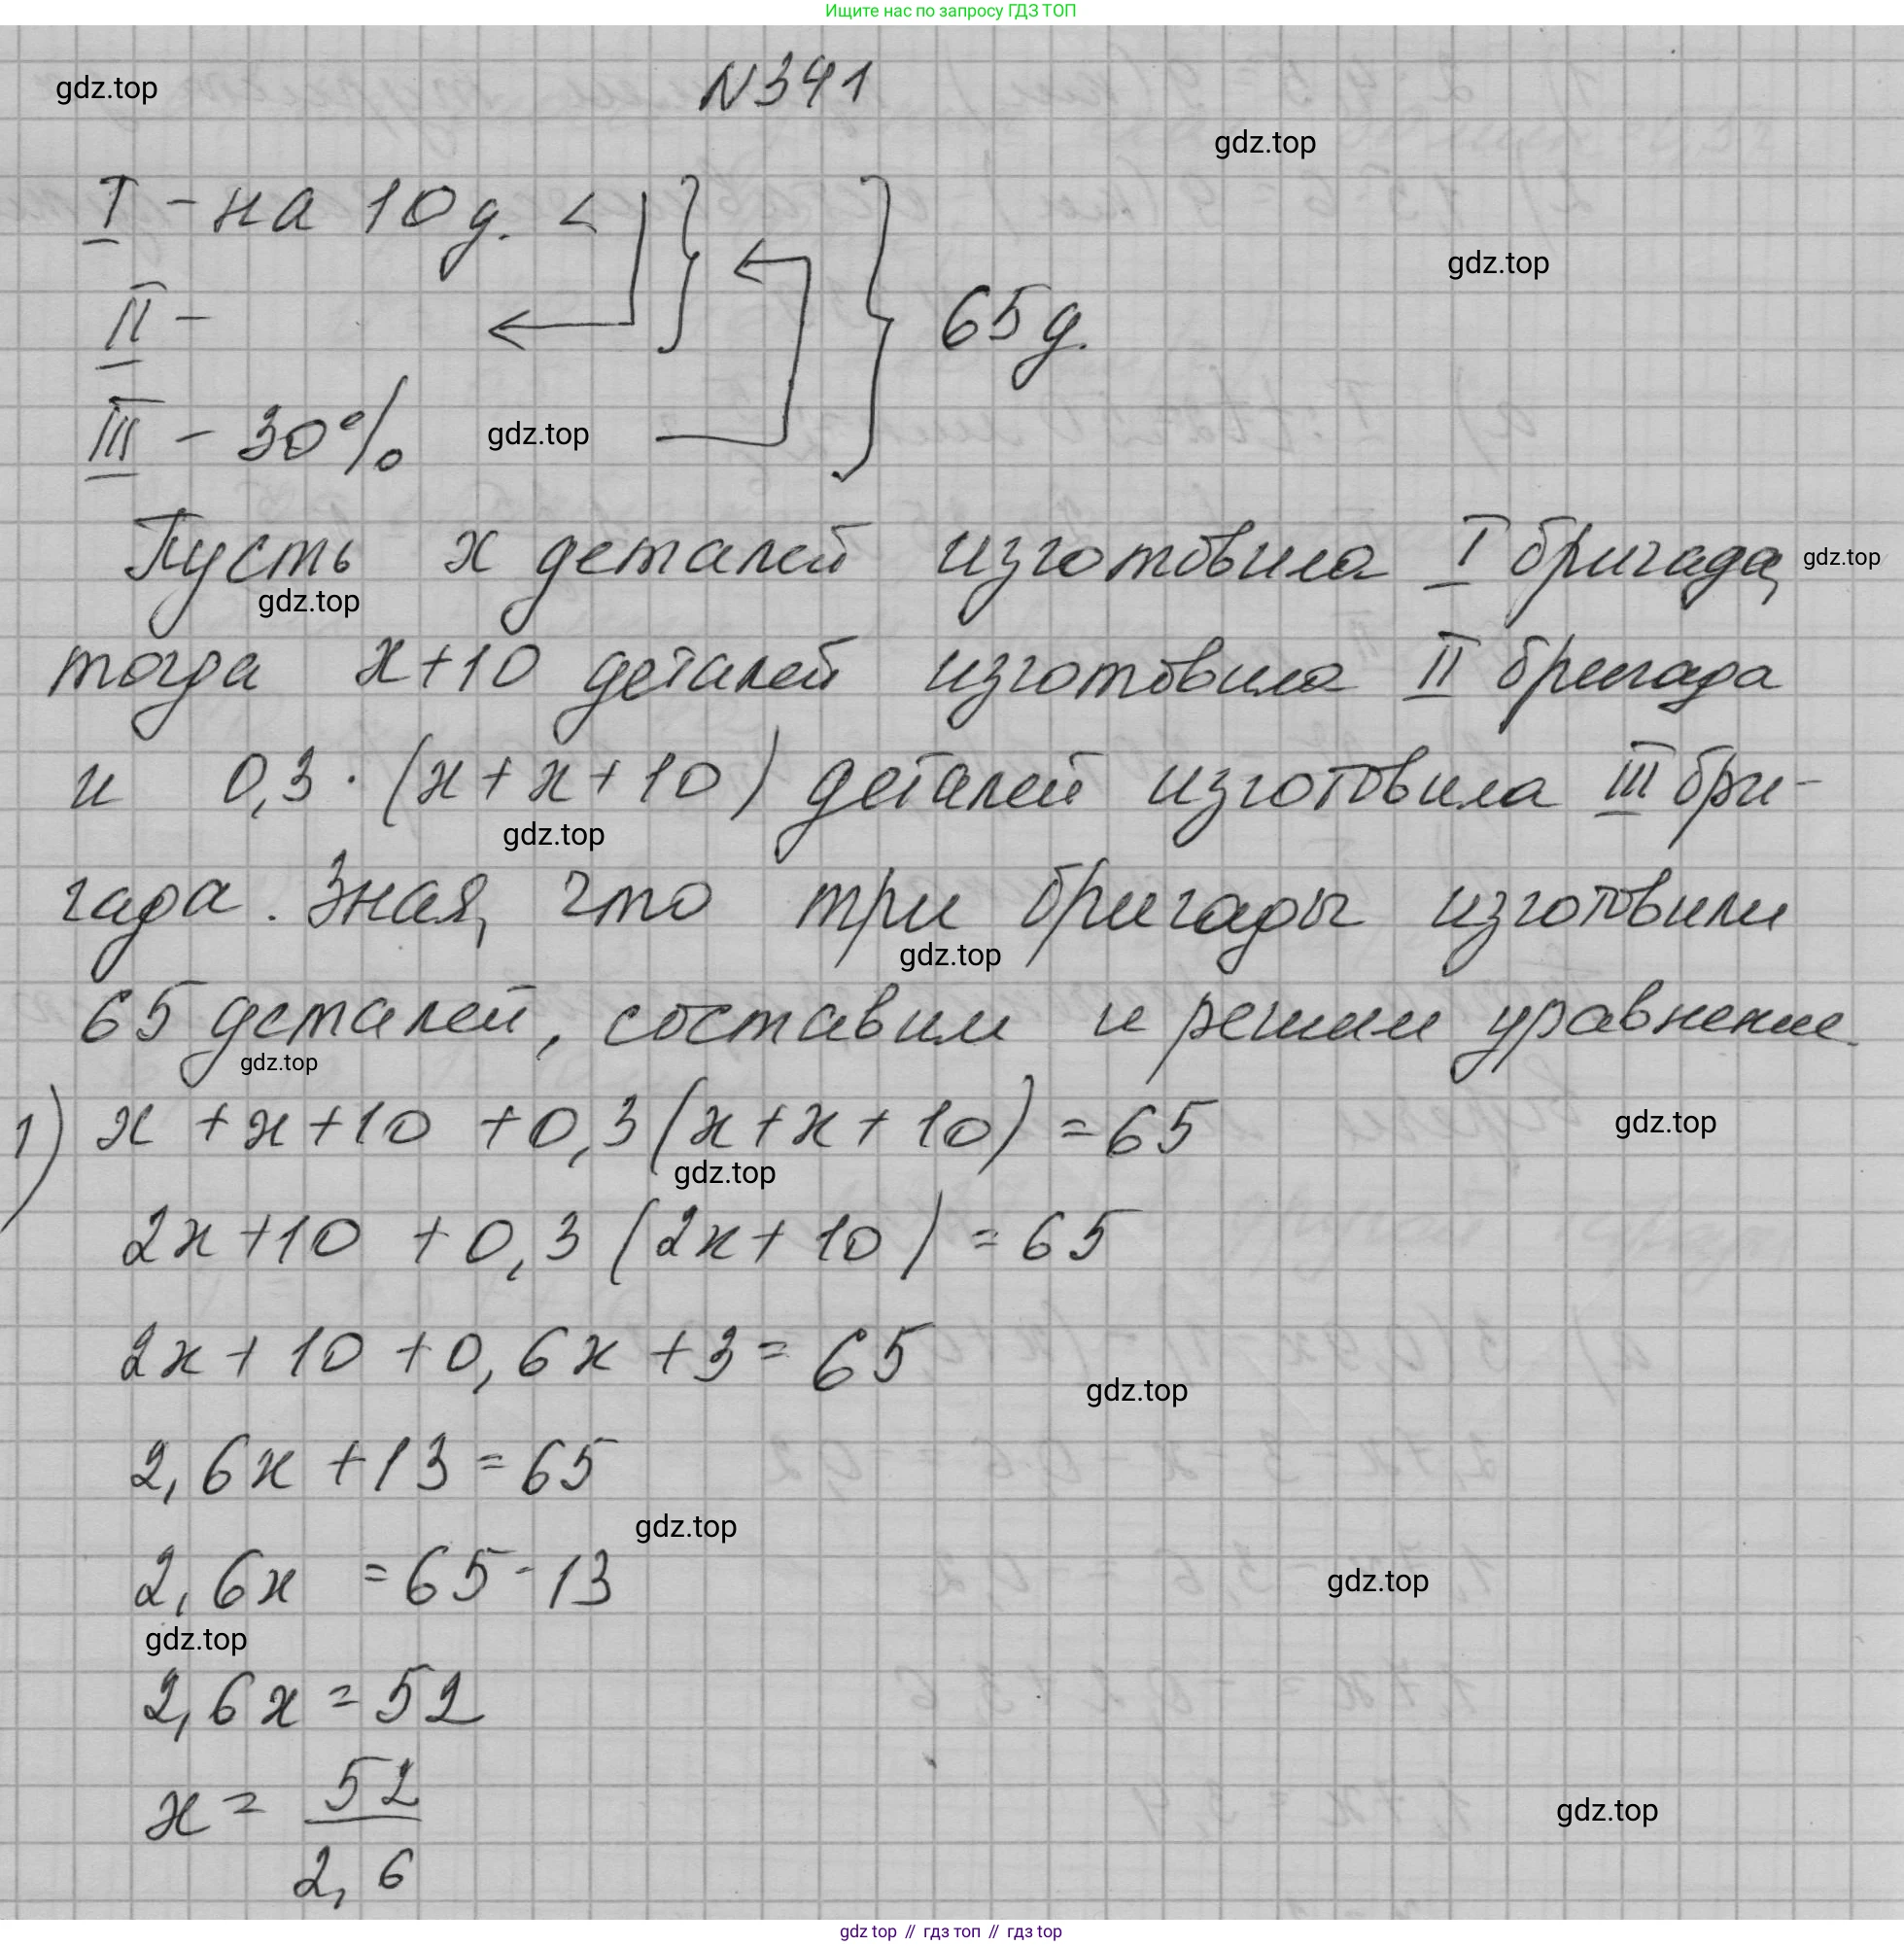 Ищите нас по запросу ГДЗ ТОП
N341
gdz.top
gdz.top
I - на 10 д. <
gdz.top
II -
65 д.
III - 30%
gdz.top
Пусть x деталей изготовила I бригада,
gdz.top
gdz.top
тогда x+10 деталей изготовила II бригада
и 0,3 · (x+x+10) деталей изготовила III бри-
gdz.top
гада. Зная, что три бригады изготовили
gdz.top
65 деталей, составим и решим уравнение.
gdz.top
1) x+x+10+0,3(x+x+10)=65
gdz.top
gdz.top
2x+10+0,3(2x+10)=65
2x+10+0,6x+3=65
gdz.top
2,6x+13=65
gdz.top
2,6x=65-13
gdz.top
gdz.top
2,6x=52
x=52/2,6
gdz.top
gdz top // гдз топ // гдз top